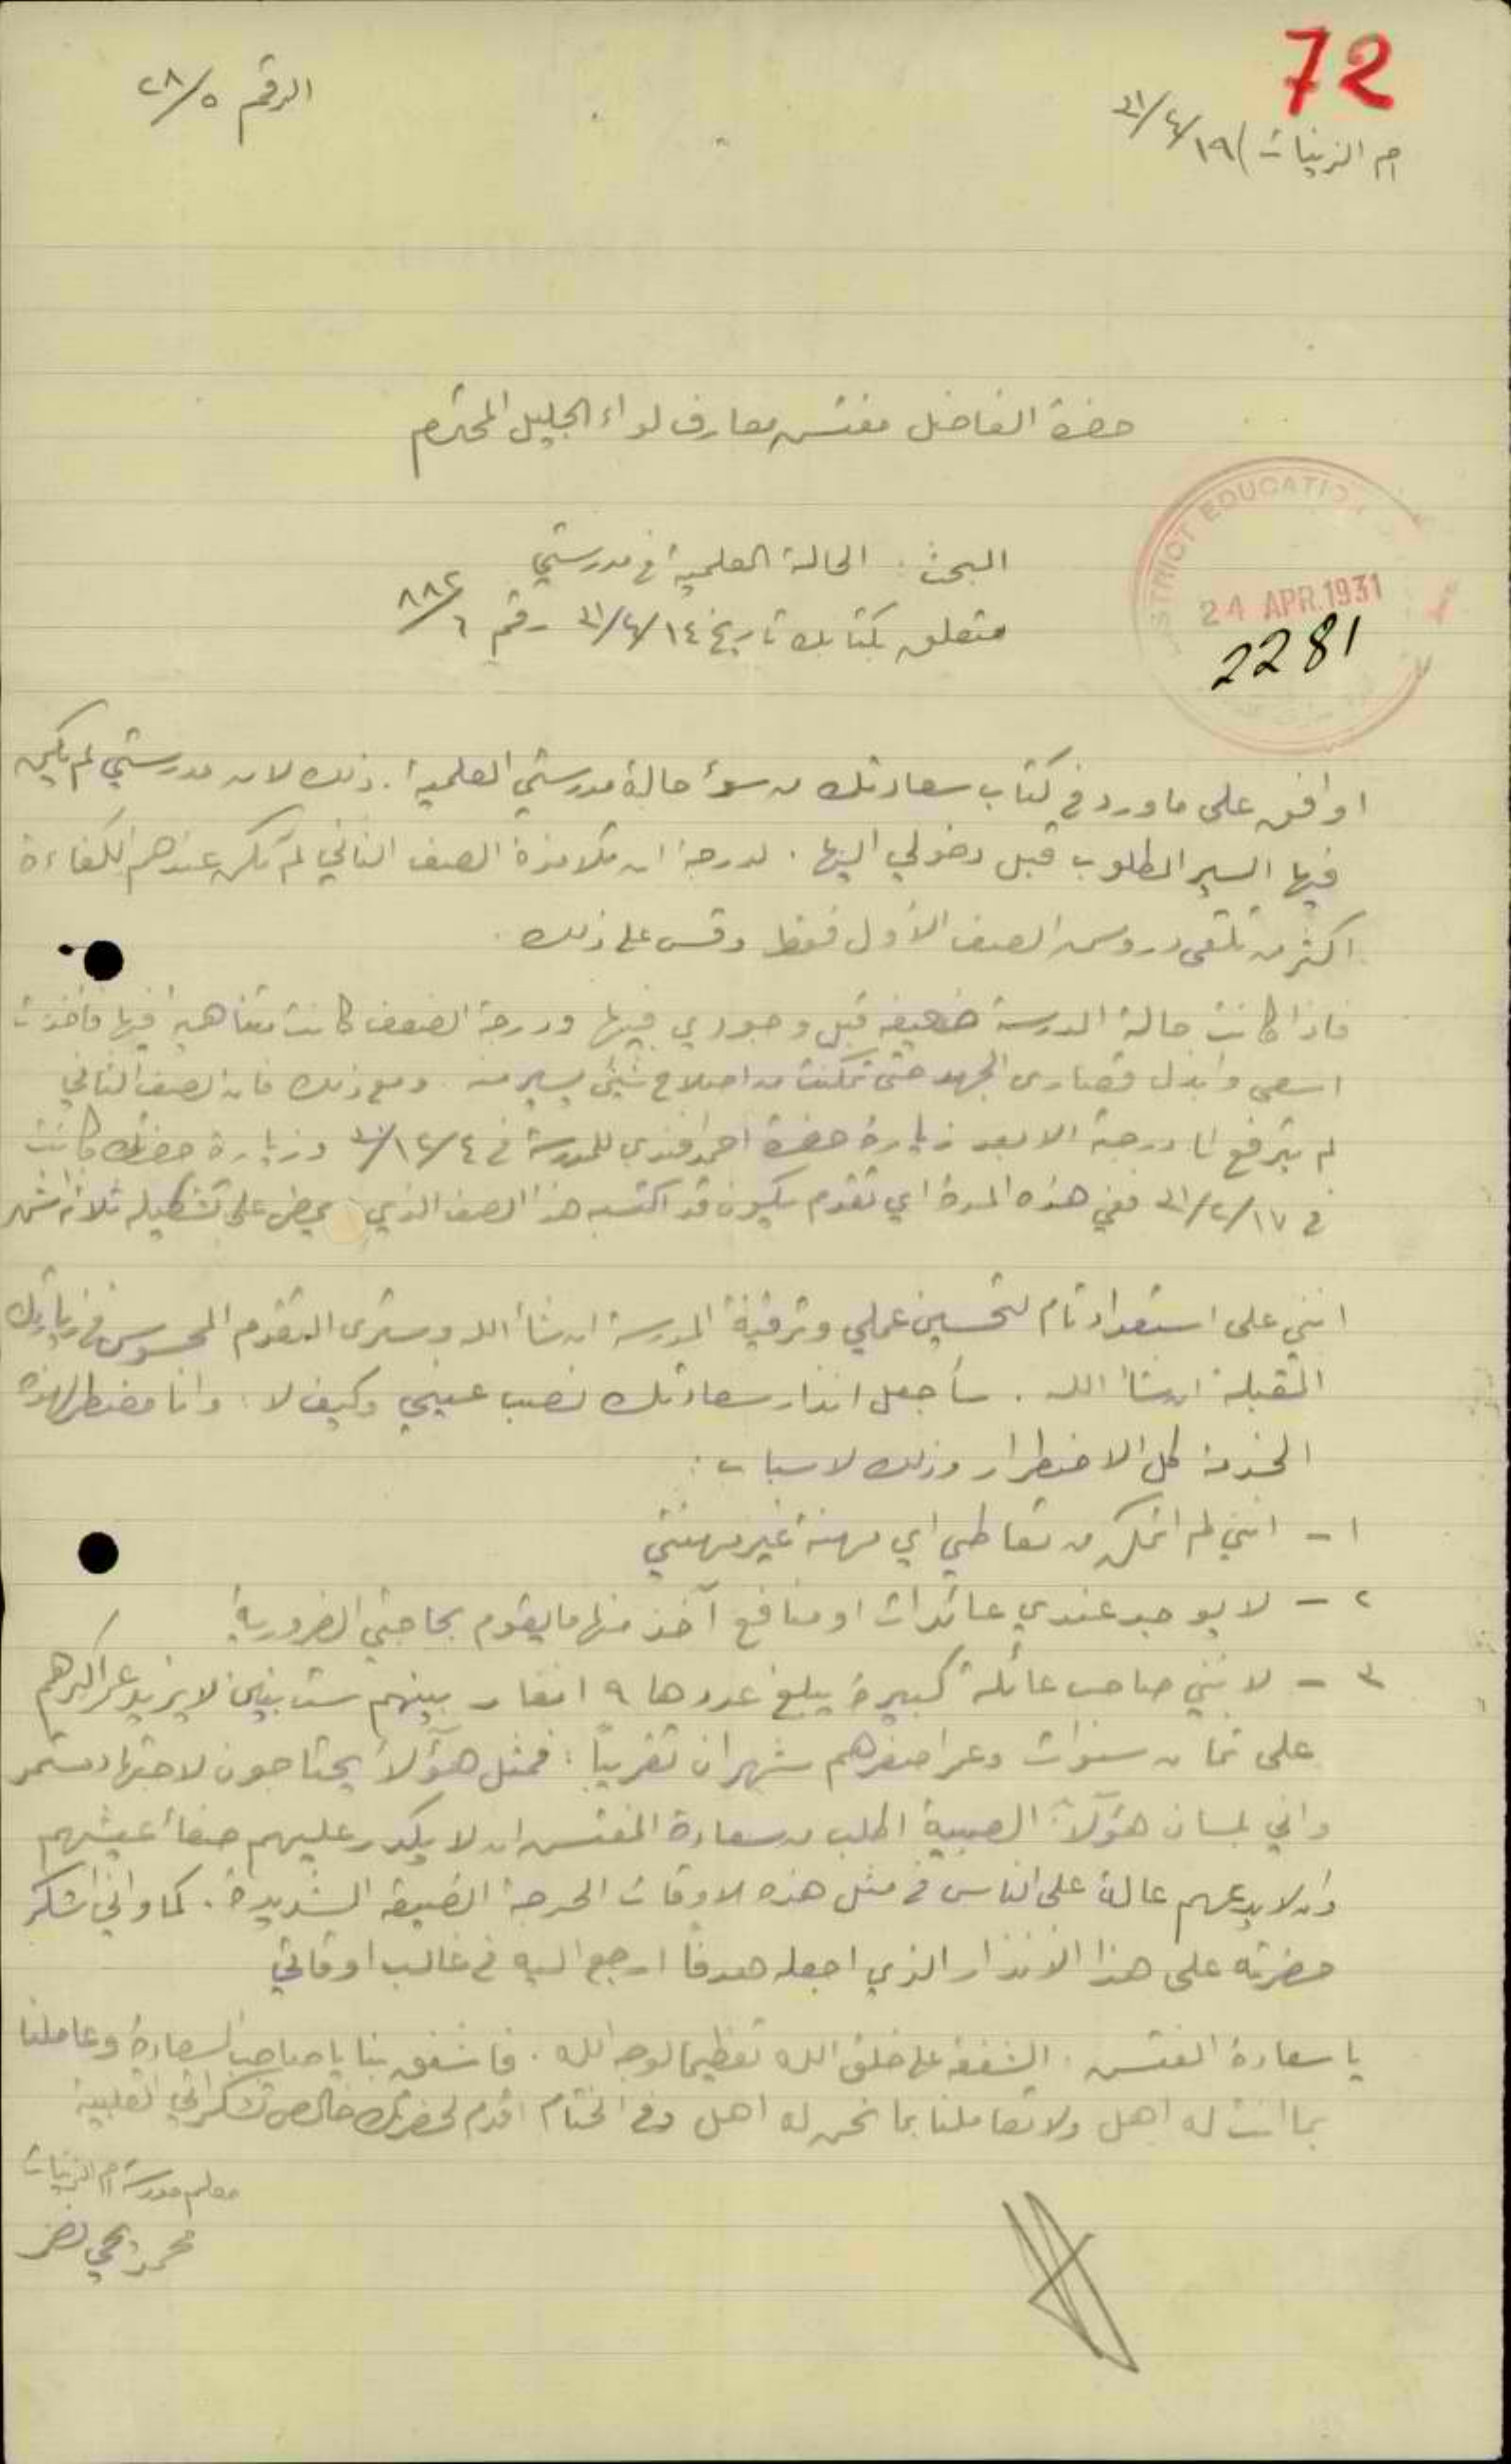 72
ام الزينات) ١٩/٤/٣١
الرقم ٥/٢٨
حضرة الفاضل مفتش معارف لواء الجليل المحترم
DISTRICT EDUCATION
24 APR. 1931
2281
البحث : الحالة العلمية في مدرستي
متعلق بكتابك تاريخ ١٤/٤/٣١ رقم ٦/٨٨٢
اوافق على ما ورد في كتاب سعادتك من سوء حالة مدرستي العلمية . ذلك لان مدرستي لم يكن
فيها السير المطلوب قبل دخولي اليها . لدرجة ان تلامذة الصف الثاني لم تكن عندهم الكفاءة
اكثر من تلقي دروس الصف الأول فقط وقس على ذلك .
فاذا كانت حالة المدرسة ضعيفه قبل وجودي فيها ودرجة الضعف كانت متناهية فيها فأخذت
اسعى وابذل قصارى الجهد حتى تمكنت من اصلاح شيئ يسير منه . ومع ذلك فان الصف الثاني
لم يترفع لـ درجة الا بعد زيارة حضرة احمد افندي للمدرسة في ٤/١٢/٣٠ وزيارة حضرتك كانت
في ١٧/٢/٣١ ففي هذه المدة اي تقدم يكون قد اكتسبه هذا الصف الذي لم يمض على تشكيله ثلاثة اشهر
انني على استعداد تام لتحسين عملي وترقية المدرسة ان شاء الله وسترى التقدم المحسوس في زيارتك
المقبلة ان شاء الله . سأجعل انذار سعادتك نصب عيني وكيف لا ، وانا مضطر لهذه
الخدمة كل الاضطرار وذلك لاسباب :
١ - انني لم اتمكن من تعاطي اي مهنة غير مهنتي
٢ - لا يوجد عندي عائدات او منافع آخذ منها ما يقوم بحاجتي الضرورية
٣ - لانني صاحب عائلة كبيرة يبلغ عددها ٩ انفار بينهم ست بنين لا يزيد عمر اكبرهم
على ثمان سنوات وعمر اصغرهم شهران تقريبًا : فمثل هؤلاء يحتاجون لاجتهاد مستمر
واني بلسان هؤلاء الصبية اطلب من سعادة المفتش ان لا يكدر عليهم صفاء عيشهم
وان لا يدعهم عالة على الناس في مثل هذه الاوقات الحرجة الضيقة الشديدة . كما واني اشكر
حضرته على هذا الانذار الذي اجعله هدفًا ارجع اليه في غالب اوقاتي
يا سعادة المفتش . الشفقة على خلق الله تعظيما لوجه الله . فاشفق بنا يا صاحب السعادة وعاملنا
بما انت له اهل ولا تعاملنا بما نحن له اهل وفي الختام اقدم لحضرتك خالص تشكراتي القلبية
معلم مدرسة ام الزينات
محمد يحيى